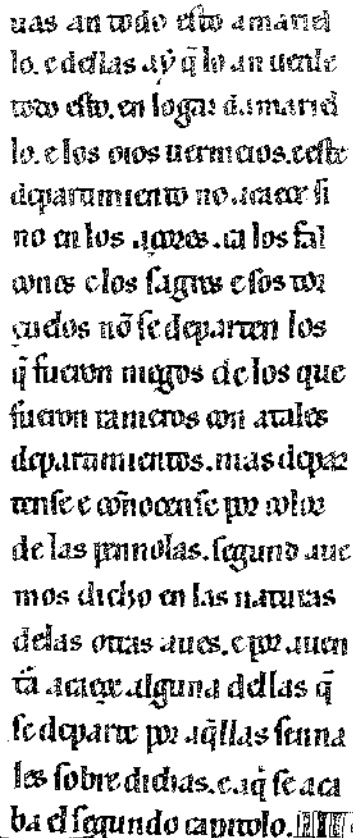 uas an todo esto amariel
lo. e dellas aẏ q̃ lo an uerde
todo esto. en logar damariel
lo. e los oios uermeios. e este
departimiento no acaece si
no en los açores. ca los fal
cones e los sagres e sos tor
çuelos nõ se departen los
q̃ fueron niegos de los que
fueron rameros con atales
departimientos. mas depar
tense e coñocense por color
de las pennolas. segund aue
mos dicho en las naturas
delas otras aues. e por auen
tã acaece alguna dellas q̃
se departe por aq̃llas senna
les sobre dichas. e aq̃ se aca
ba el segundo capitolo.